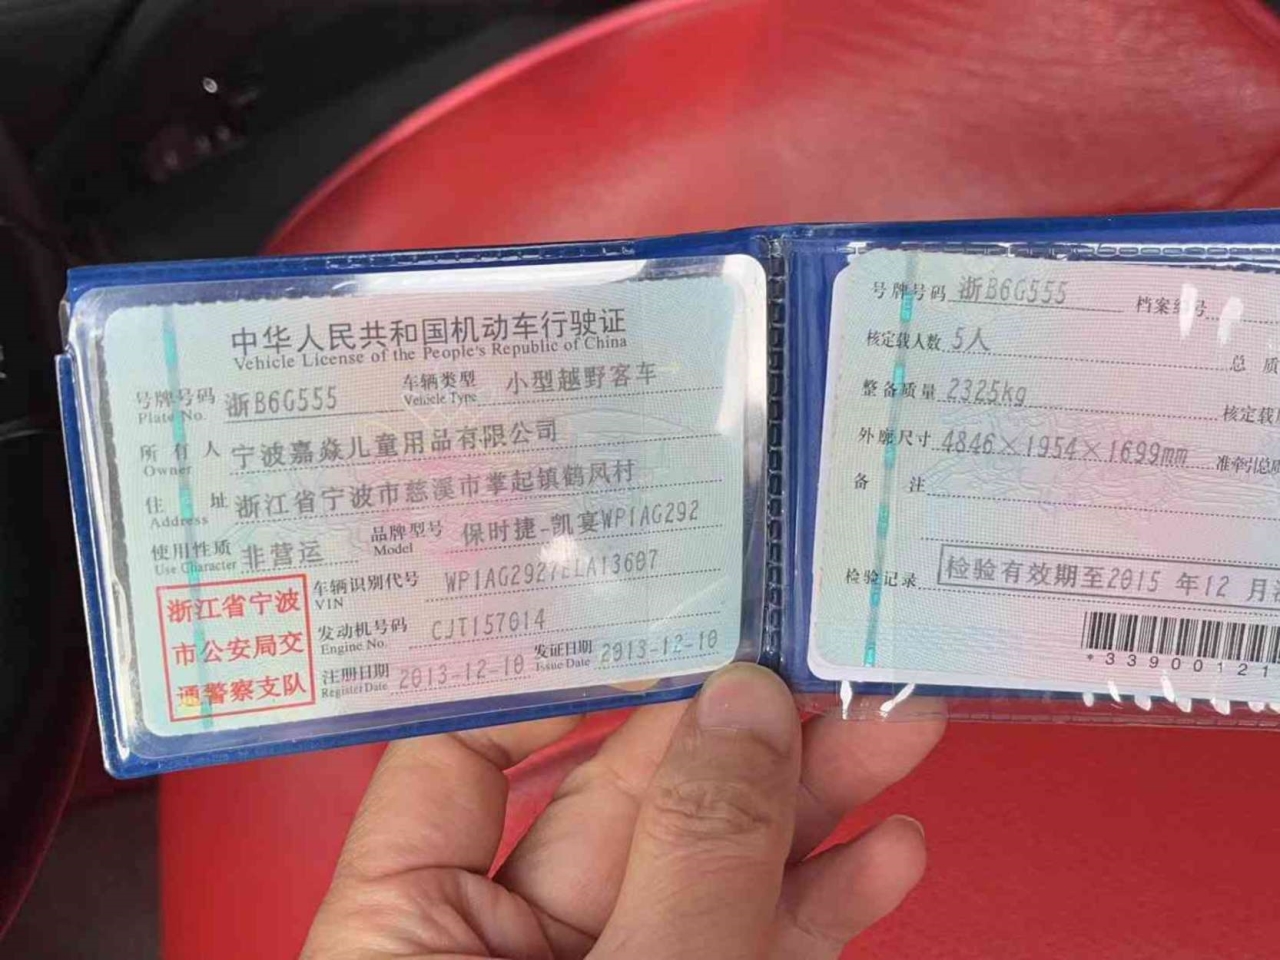 中华人民共和国机动车行驶证
Vehicle License of the People's Republic of China
号牌号码 浙B6G555 车辆类型 小型越野客车
Plate No. Vehicle Type
所有人 宁波嘉焱儿童用品有限公司
Owner
住址 浙江省宁波市慈溪市掌起镇鹤凤村
Address
使用性质 非营运 品牌型号 保时捷-凯宴WP1AG292
Use Character Model
浙江省宁波市公安局交通警察支队
车辆识别代号
VIN
发动机号码 CJT157014
Engine No.
注册日期 2013-12-10 发证日期 2013-12-10
Register Date Issue Date
号牌号码 浙B6G555 档案编号
核定载人数 5人 总质
整备质量 2325kg 核定载
外廓尺寸 4846×1954×1699mm 准牵引总质
备注
检验记录 检验有效期至2015年12月
*33900121